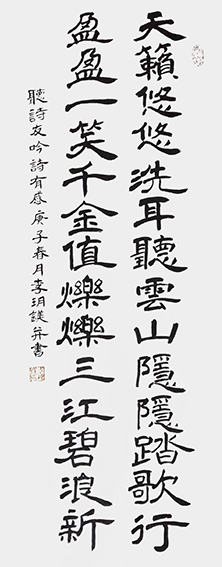 天籟悠悠洗耳聽雲山隱隱踏歌行
盈盈一笑千金值爍爍三江碧浪新
聽詩友吟詩有感庚子春月李玥談并書